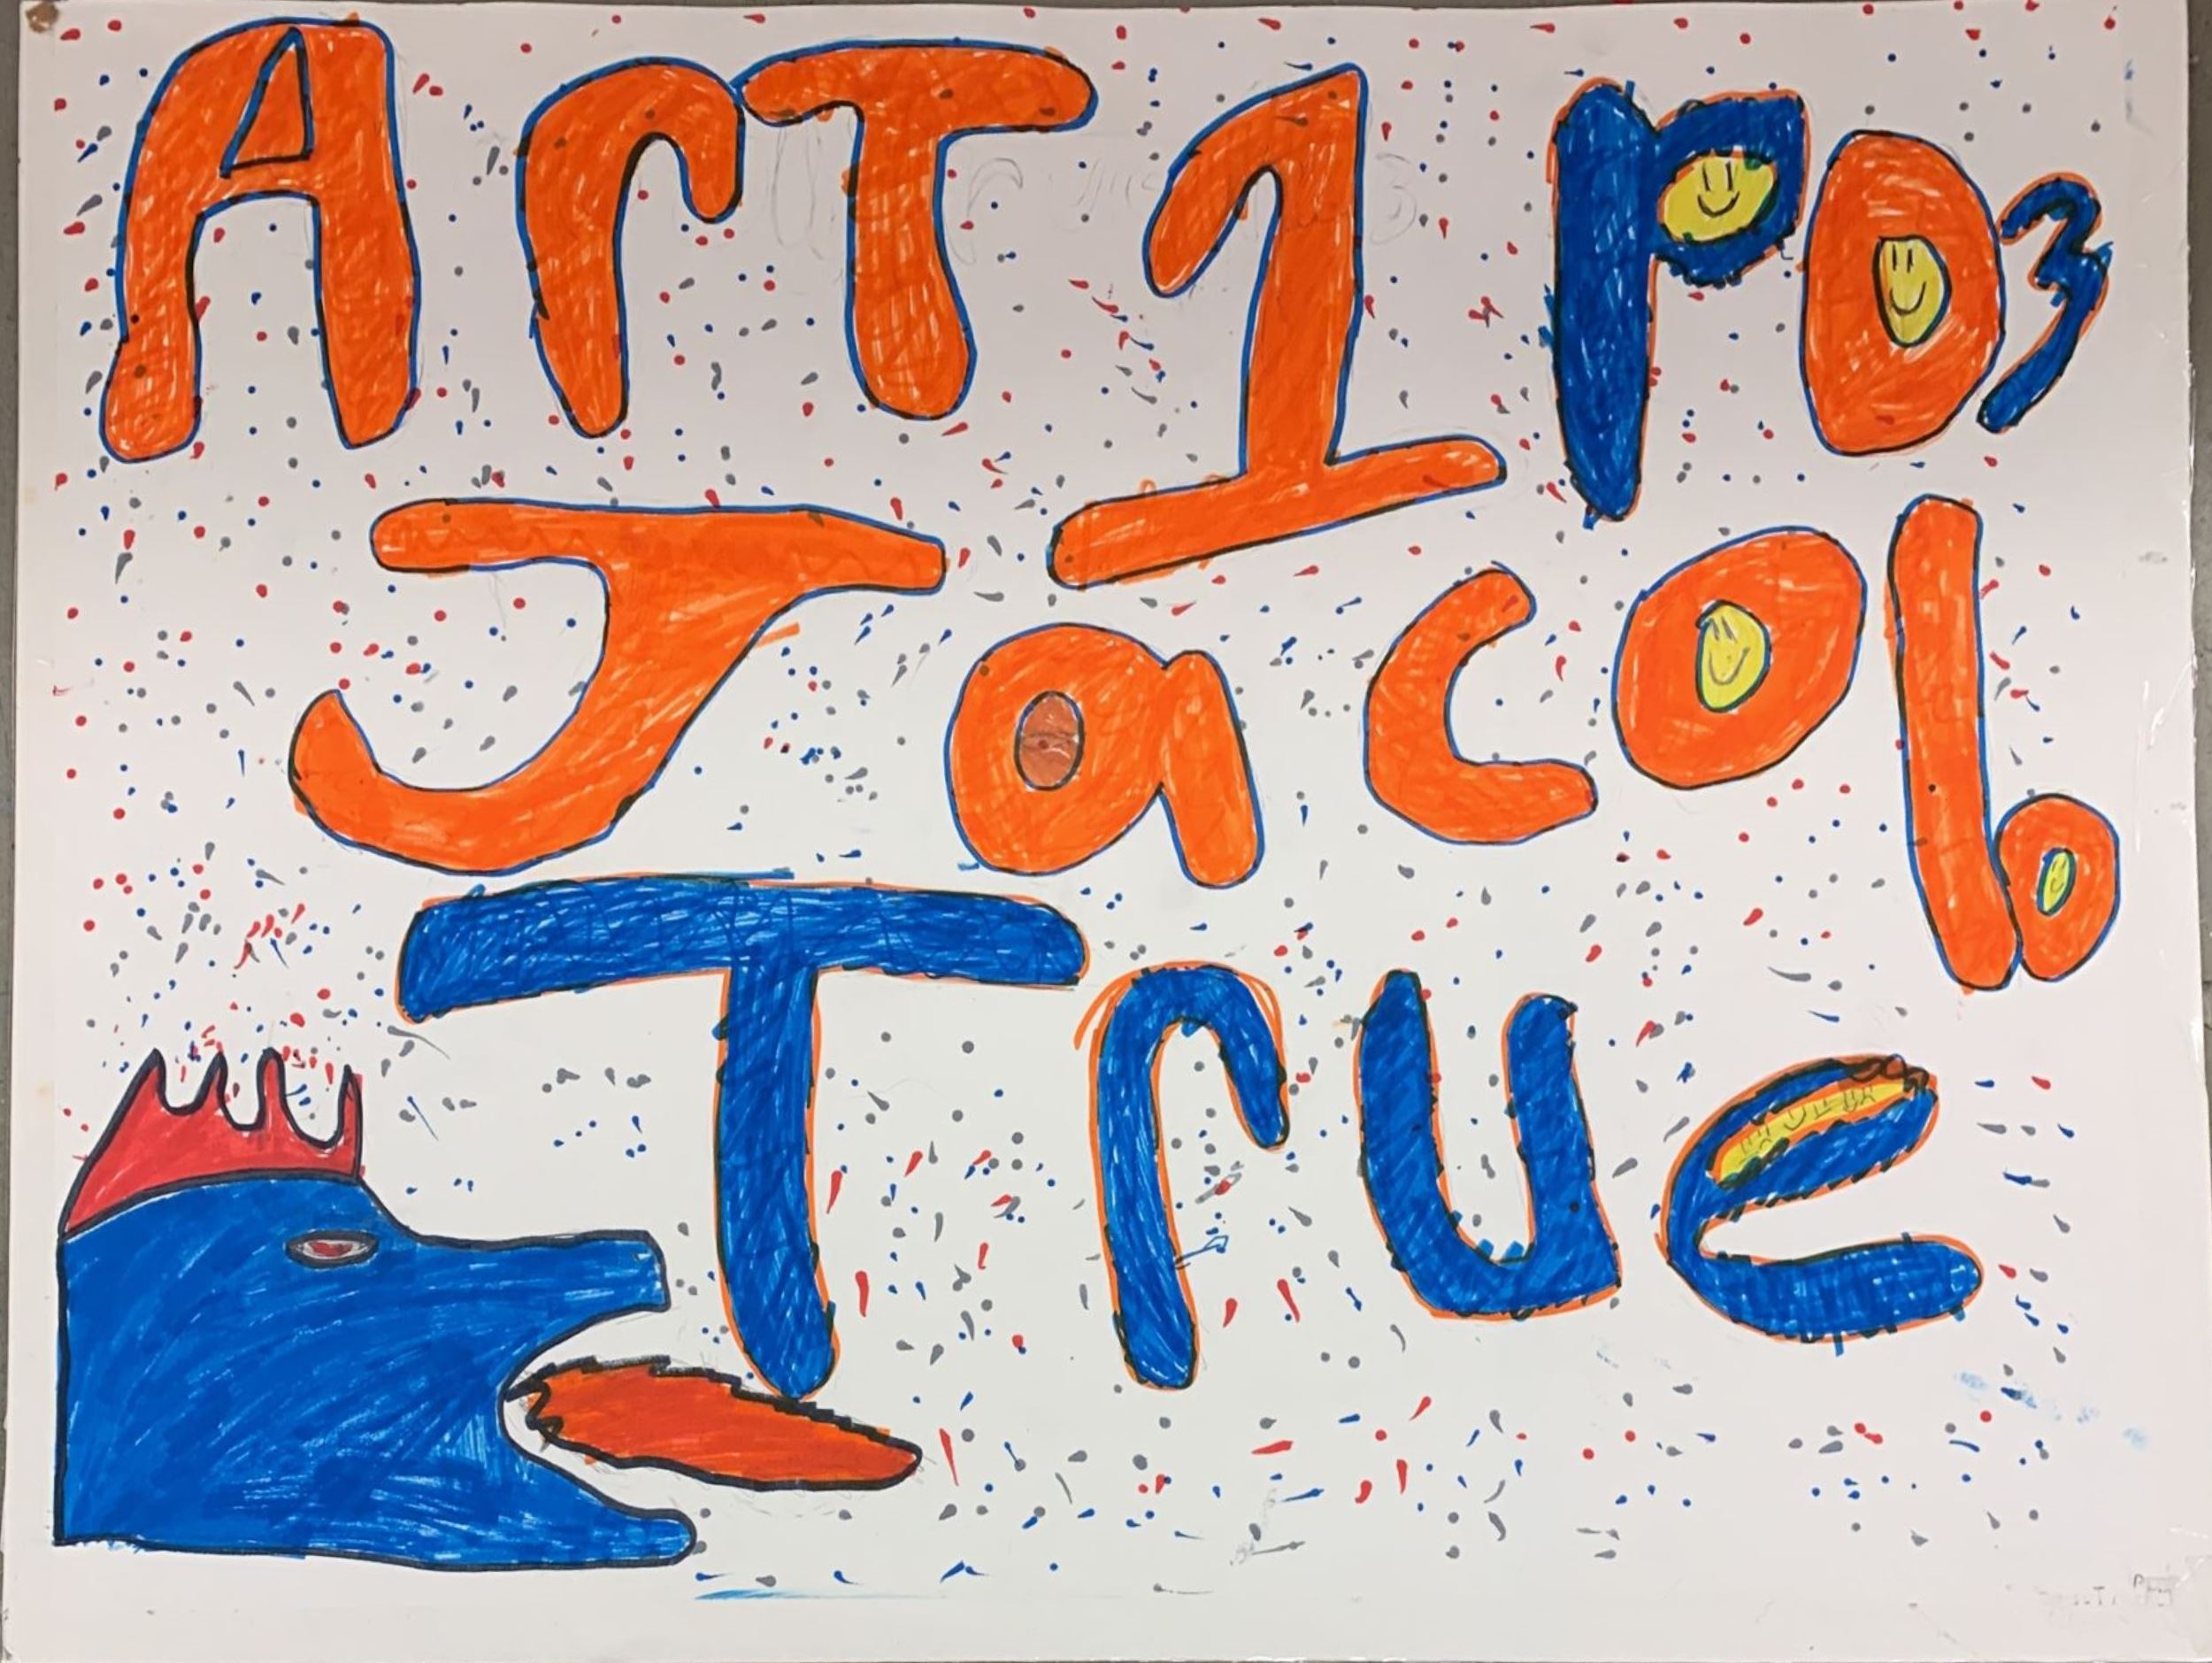 ArT 1 PD3
Jacob
True